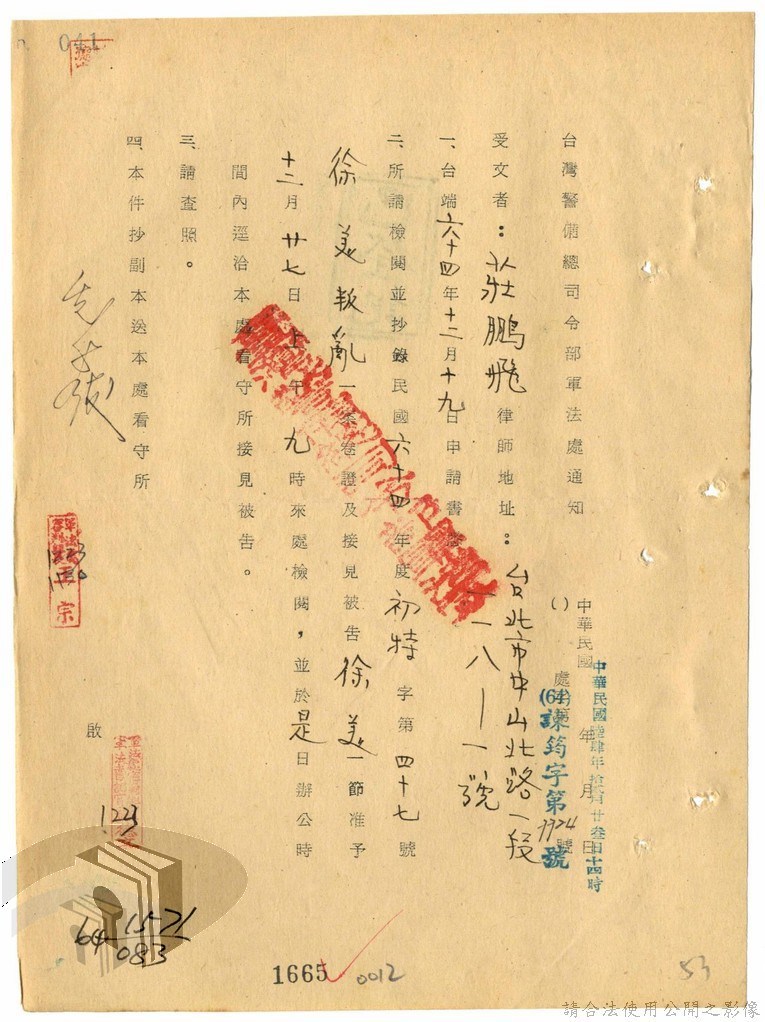 041
台灣警備總司令部軍法處通知
中華民國 年 月 日
中華民國陸肆年拾貳月廿叁日十四時
( ) 處 號
(64)諫筠字第9924號
受文者：莊鵬飛律師地址：台北市中山北路一段一一八—一號
一、台端六十四年十二月十九日申請書
二、所請檢閱並抄錄民國六十四年度初特字第四十七號
徐美叛亂一案卷證及接見被告徐美一節准予
十二月廿七日上午九時來處檢閱，並於是日辦公時
間內逕洽本處看守所接見被告。
三、請查照。
四、本件抄副本送本處看守所
啟
1223
1665
0012
53
64 1571
083
請合法使用公開之影像